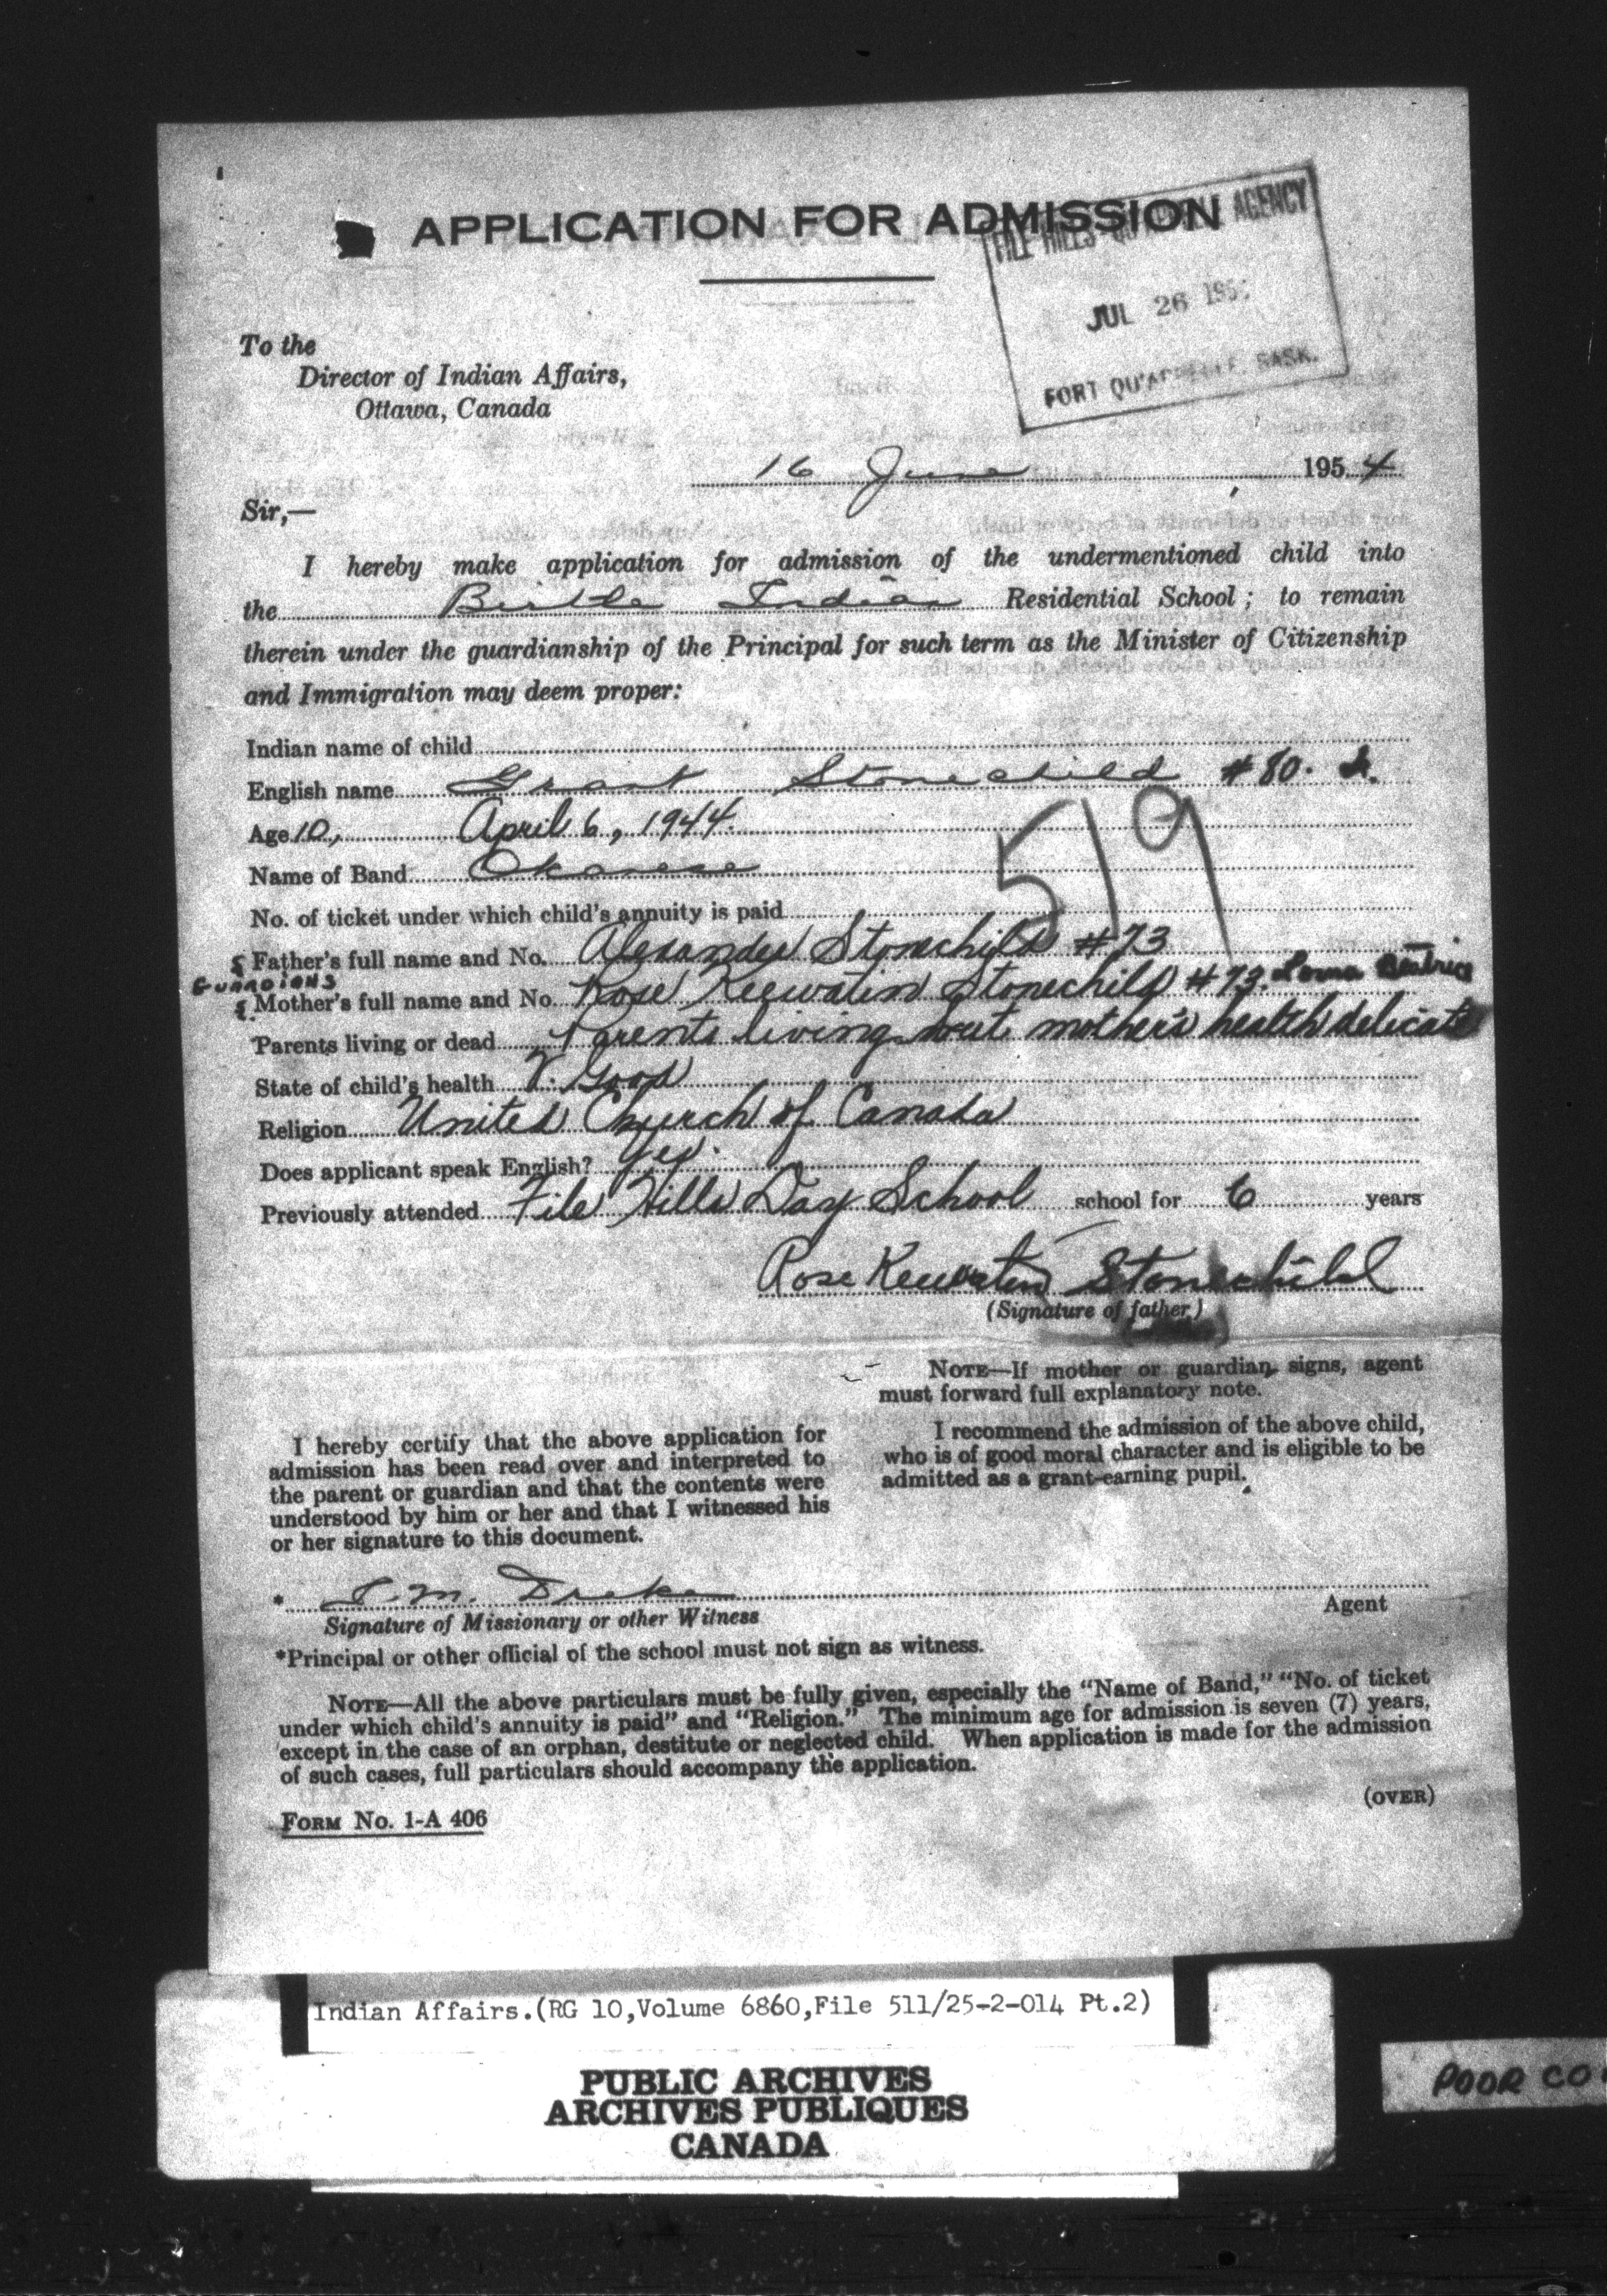 APPLICATION FOR ADMISSION
FILE HILLS QU'APPELLE AGENCY
JUL 26 195
FORT QU'APPELLE, SASK.
To the
Director of Indian Affairs,
Ottawa, Canada
16 June 1954
Sir,—
I hereby make application for admission of the undermentioned child into
the Birtle Indian Residential School; to remain
therein under the guardianship of the Principal for such term as the Minister of Citizenship
and Immigration may deem proper:
Indian name of child
English name Grant Stonechild #80.
Age 10, April 6, 1944.
519
Name of Band Okanese
No. of ticket under which child's annuity is paid
Father's full name and No. Alexander Stonechild #73
GUARDIANS
Mother's full name and No. Rose Keewatin Stonechild #73. Lorna Beatrice
Parents living or dead Parents living but mother's health delicate
State of child's health V. Good
Religion United Church of Canada
Does applicant speak English? Yes.
Previously attended File Hills Day School school for 6 years
Rose Keewatin Stonechild
(Signature of father)
NOTE—If mother or guardian signs, agent
must forward full explanatory note.
I hereby certify that the above application for
admission has been read over and interpreted to
the parent or guardian and that the contents were
understood by him or her and that I witnessed his
or her signature to this document.
I recommend the admission of the above child,
who is of good moral character and is eligible to be
admitted as a grant-earning pupil.
* J. M. Drake
Signature of Missionary or other Witness
Agent
*Principal or other official of the school must not sign as witness.
NOTE—All the above particulars must be fully given, especially the "Name of Band," "No. of ticket
under which child's annuity is paid" and "Religion." The minimum age for admission is seven (7) years,
except in the case of an orphan, destitute or neglected child. When application is made for the admission
of such cases, full particulars should accompany the application.
(OVER)
FORM NO. 1-A 406
Indian Affairs.(RG 10,Volume 6860,File 511/25-2-014 Pt.2)
PUBLIC ARCHIVES
ARCHIVES PUBLIQUES
CANADA
POOR CO